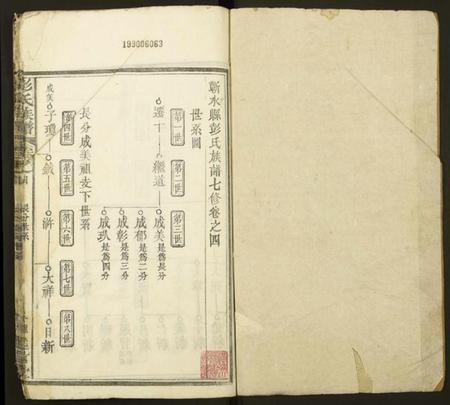 199006063
蘄水縣彭氏族譜七修卷之四
世系圖
第一世 第二世 第三世
遷十 繼道 成美是爲長分
成郁是爲二分
成彰是爲三分
成㺬是爲四分
長分成美祖支下世系
第四世 第五世 第六世 第七世 第八世
成美 子瓊 鉞 滸 大祥 日新
彭氏族譜